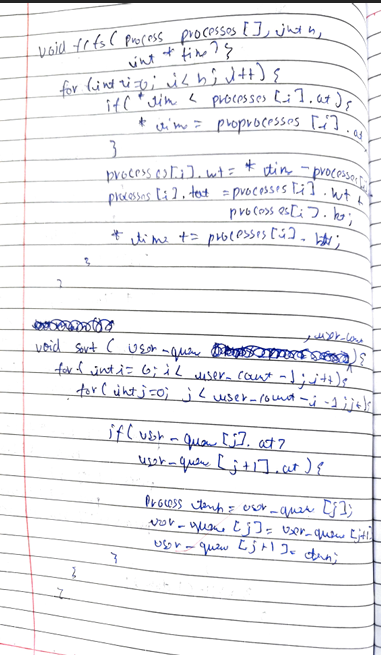 void fcfs ( process processes [], int n,
int * time) {
for (int i=0; i< n; i++) {
if( * tim < processes [i]. at) {
* tim = proprocesses [i]. at
}
processes[i]. wt = * tim - processes[i]
processes [i]. tat = processes[i]. wt +
processes[i]. bt;
* time += processes[i]. bt;
}
}
, user-cou
void sort ( user-queue ) {
for ( int i= 0; i< user_count -1; i++) {
for ( int j=0; j < user_count -i -1; j++) {
if( user-queue [j]. at >
user-queue [j+1]. at ) {
Process temp = user-queue [j];
user-queue [j] = user-queue [j+1
user-queue [j+1] = temp;
}
}
}